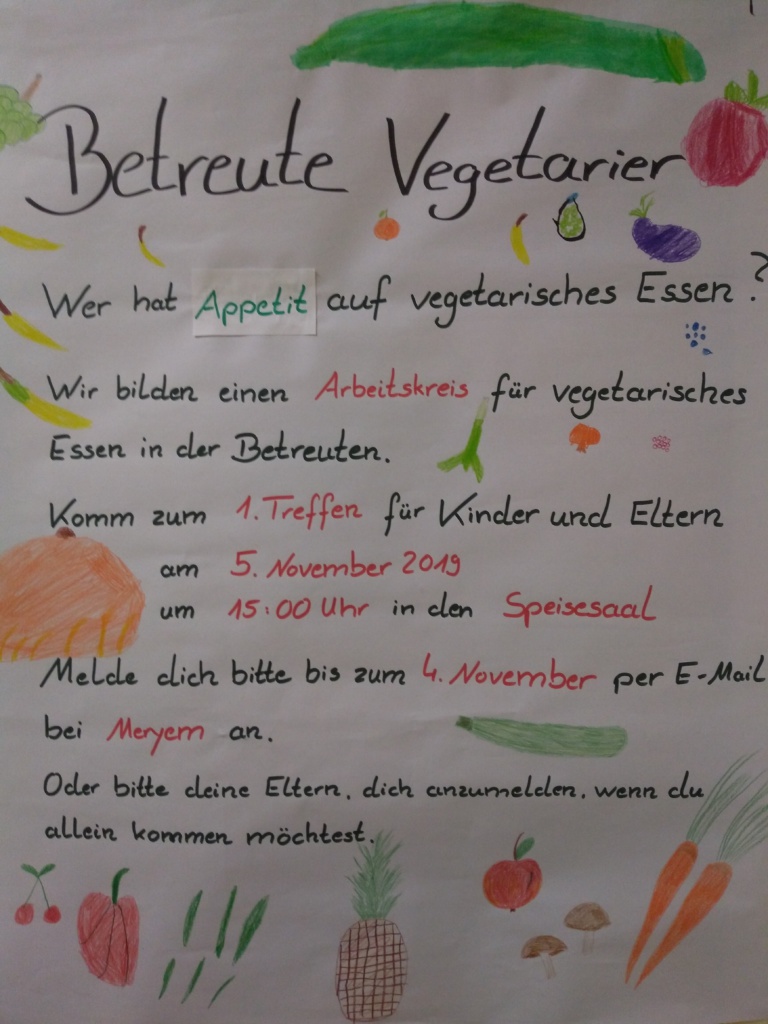 Betreute Vegetarier
Wer hat Appetit auf vegetarisches Essen ?
Wir bilden einen Arbeitskreis für vegetarisches
Essen in der Betreuten.
Komm zum 1. Treffen für Kinder und Eltern
am 5. November 2019
um 15:00 Uhr in den Speisesaal
Melde dich bitte bis zum 4. November per E-Mail
bei Meryem an.
Oder bitte deine Eltern, dich anzumelden, wenn du
allein kommen möchtest.